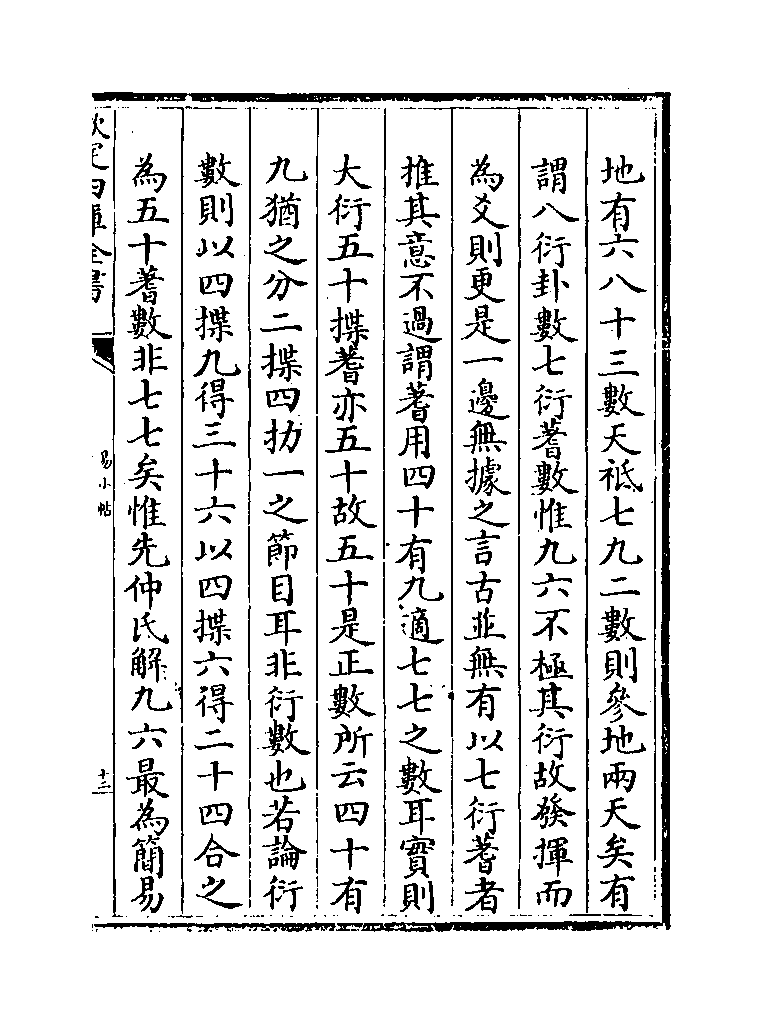 地有六八十三數天祗七九二數則參地兩天矣有
謂八衍卦數七衍蓍數惟九六不極其衍故發揮而
為爻則更是一邊無據之言古並無有以七衍蓍者
推其意不過謂蓍用四十有九適七七之數耳實則
大衍五十揲蓍亦五十故五十是正數所云四十有
九猶之分二揲四扐一之節目耳非衍數也若論衍
數則以四揲九得三十六以四揲六得二十四合之
為五十蓍數非七七矣惟先仲氏解九六最為簡易
欽定四庫全書
易小帖
十三